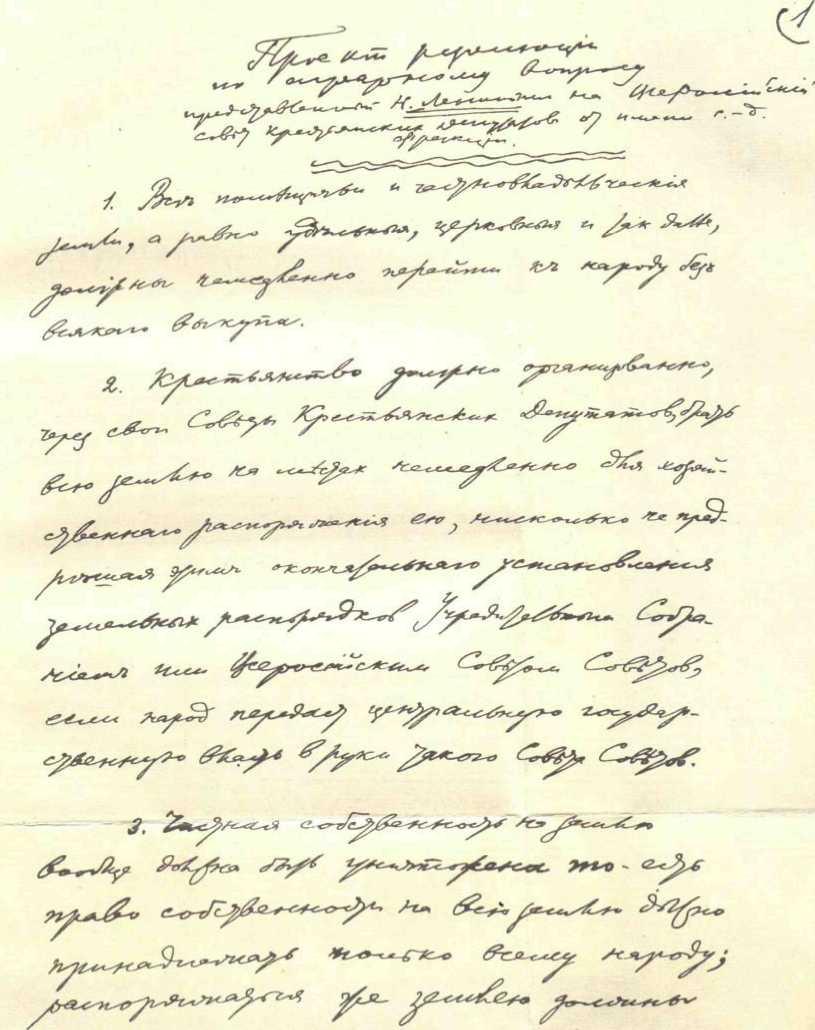 1
Проект резолюціи
по аграрному вопросу
представленный Н. Ленинымъ на Всероссійскій
совѣт крестьянских депутатов от имени с.-д.
фракции.
1. Всѣ помѣщичьи и частновладѣльческія
земли, а равно удѣльныя, церковныя и так далѣе,
должны немедленно перейти къ народу безъ
всякаго выкупа.
2. Крестьянство должно организованно,
через свои Совѣты Крестьянских Депутатов, брать
всю землю на мѣстах немедленно для хозяй-
ственнаго распоряженія ею, нисколько не пред-
рѣшая этимъ окончательнаго установления
земельных распорядков Учредительным Собра-
ніемъ или Всероссійским Совѣтом Совѣтов,
если народ передаст центральную государ-
ственную власть в руки такого Совѣта Совѣтов.
3. Частная собственность на землю
вообще должна быть уничтожена то-есть
право собственности на всю землю должно
принадлежать только всему народу;
распоряжаться же землею должны